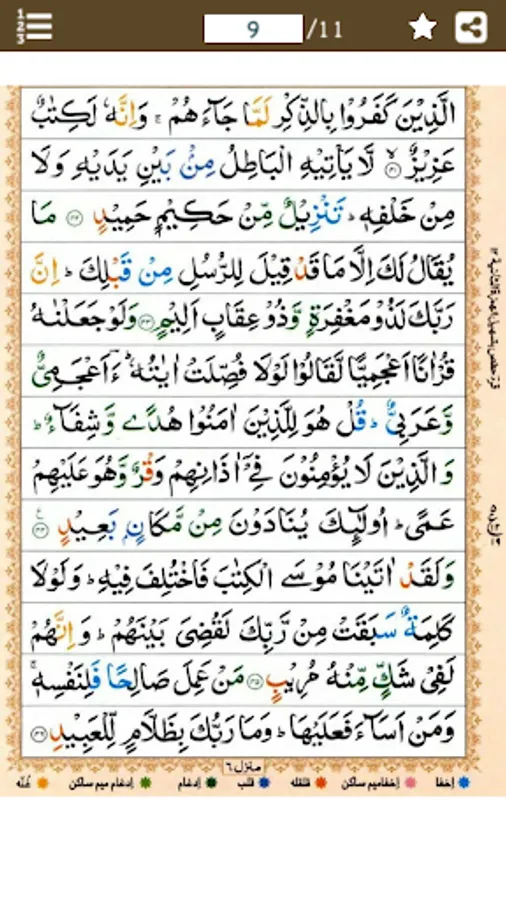 9 /11
الَّذِيْنَ كَفَرُوْا بِالذِّكْرِ لَمَّا جَآءَهُمْ ۚ وَاِنَّهٗ لَكِتٰبٌ
عَزِيْزٌ ۙ﴿۴۱﴾ لَّا يَاْتِيْهِ الْبَاطِلُ مِنْۢ بَيْنِ يَدَيْهِ وَلَا
مِنْ خَلْفِهٖ ؕ تَنْزِيْلٌ مِّنْ حَكِيْمٍ حَمِيْدٍ ﴿۴۲﴾ مَا
يُقَالُ لَكَ اِلَّا مَا قَدْ قِيْلَ لِلرُّسُلِ مِنْ قَبْلِكَ ؕ اِنَّ
رَبَّكَ لَذُوْ مَغْفِرَةٍ وَّذُوْ عِقَابٍ اَلِيْمٍ ﴿۴۳﴾ وَلَوْ جَعَلْنٰهُ
قُرْاٰنًا اَعْجَمِيًّا لَّقَالُوْا لَوْلَا فُصِّلَتْ اٰيٰتُهٗ ؕ ءَؔاَعْجَمِىٌّ
وَّعَرَبِىٌّ ؕ قُلْ هُوَ لِلَّذِيْنَ اٰمَنُوْا هُدًى وَّشِفَآءٌ ؕ
وَالَّذِيْنَ لَا يُؤْمِنُوْنَ فِىْۤ اٰذَانِهِمْ وَقْرٌ وَّهُوَ عَلَيْهِمْ
عَمًى ؕ اُولٰٓٮِٕكَ يُنَادَوْنَ مِنْ مَّكَانٍۢ بَعِيْدٍ ﴿۴۴﴾
وَلَقَدْ اٰتَيْنَا مُوْسَى الْكِتٰبَ فَاخْتُلِفَ فِيْهِ ؕ وَلَوْلَا
كَلِمَةٌ سَبَقَتْ مِنْ رَّبِّكَ لَقُضِىَ بَيْنَهُمْ ؕ وَاِنَّهُمْ
لَفِىْ شَكٍّ مِّنْهُ مُرِيْبٍ ﴿۴۵﴾ مَنْ عَمِلَ صَالِحًا فَلِنَفْسِهٖ ۚ
وَمَنْ اَسَآءَ فَعَلَيْهَا ؕ وَمَا رَبُّكَ بِظَلَّامٍ لِّلْعَبِيْدِ ﴿۴۶﴾
منزل ٦
اِخفا اِخفامیم ساکن قلقله قلب اِدغام اِدغام میم ساکن غُنّه